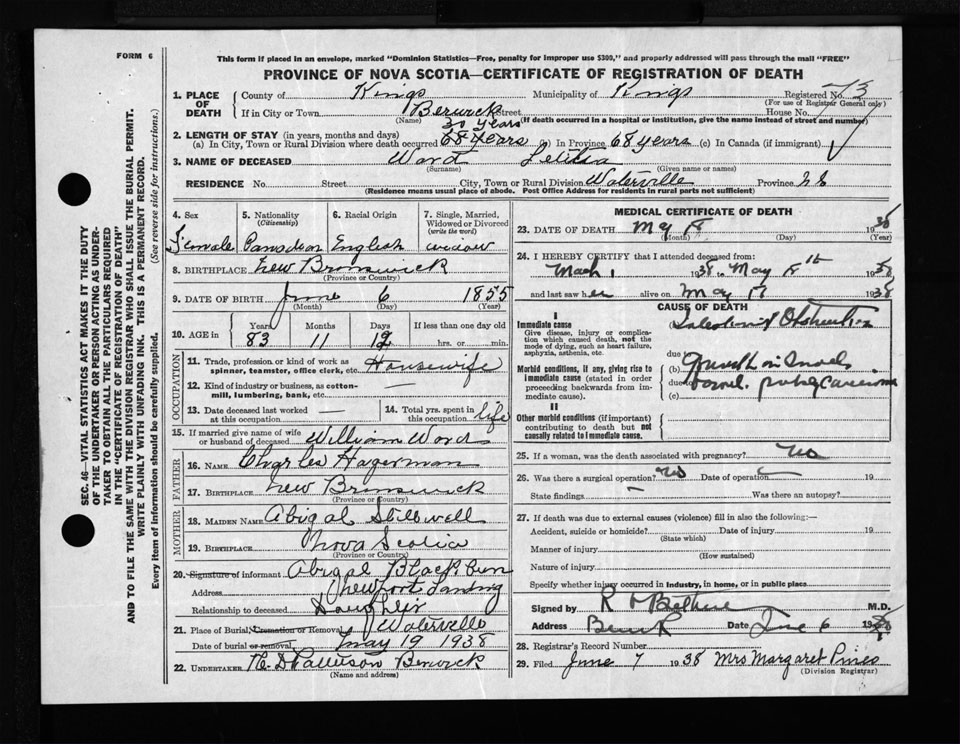 FORM 6
This form if placed in an envelope, marked "Dominion Statistics—Free, penalty for improper use $300," and properly addressed will pass through the mail "FREE"
PROVINCE OF NOVA SCOTIA—CERTIFICATE OF REGISTRATION OF DEATH
SEC. 46—VITAL STATISTICS ACT MAKES IT THE DUTY
OF THE UNDERTAKER OR PERSON ACTING AS UNDER-
TAKER TO OBTAIN ALL THE PARTICULARS REQUIRED
IN THE "CERTIFICATE OF REGISTRATION OF DEATH"
AND TO FILE THE SAME WITH THE DIVISION REGISTRAR WHO SHALL ISSUE THE BURIAL PERMIT.
WRITE PLAINLY WITH UNFADING INK. THIS IS A PERMANENT RECORD.
Every item of information should be carefully supplied. (See reverse side for instructions.)
1. PLACE OF DEATH
County of Kings Municipality of Kings Registered No. 13
(For use of Registrar General only)
If in City or Town Berwick Street House No.
(Name) (If death occurred in a hospital or institution, give the name instead of street and number)
30 years
2. LENGTH OF STAY (in years, months and days)
(a) In City, Town or Rural Division where death occurred 68 years (b) In Province 68 years (c) In Canada (if immigrant)
3. NAME OF DECEASED Word Letitia
(Surname) (Given name or names)
RESIDENCE No. Street City, Town or Rural Division Waterville Province N S
(Residence means usual place of abode. Post Office Address for residents in rural parts not sufficient)
4. Sex Female
5. Nationality (Citizenship) Canadian
6. Racial Origin English
7. Single, Married, Widowed or Divorced (write the word) widow
8. BIRTHPLACE New Brunswick
(Province or Country)
9. DATE OF BIRTH June 6 1855
(Month) (Day) (Year)
10. AGE in Years 83 Months 11 Days 12 If less than one day old hrs. or min.
OCCUPATION
11. Trade, profession or kind of work as spinner, teamster, office clerk, etc. Housewife
12. Kind of industry or business, as cotton-mill, lumbering, bank, etc. —
13. Date deceased last worked at this occupation —
14. Total yrs. spent in this occupation life
15. If married give name of wife or husband of deceased William Word
FATHER
16. NAME Charles Hagerman
17. BIRTHPLACE New Brunswick
(Province or Country)
MOTHER
18. MAIDEN NAME Abigal Stillwell
19. BIRTHPLACE Nova Scotia
(Province or Country)
20. Signature of informant Abigal Blackburn
Address Newport Landing
Relationship to deceased Daughter
21. Place of Burial, Cremation or Removal Waterville
Date of burial or removal May 19 1938
22. UNDERTAKER Patterson Berwick
(Name and address)
MEDICAL CERTIFICATE OF DEATH
23. DATE OF DEATH May 18 1938
(Month) (Day) (Year)
24. I HEREBY CERTIFY that I attended deceased from:
March 1 1938 to May 18th 1938
and last saw her alive on May 18 1938
CAUSE OF DEATH
I
Immediate cause
Give disease, injury or complication which caused death, not the mode of dying, such as heart failure, asphyxia, asthenia, etc.
(a) Intestinal Obstruction
due to
Morbid conditions, if any, giving rise to immediate cause (stated in order proceeding backwards from immediate cause).
(b) Growth in bowel
due to
(c) prob carcinoma
II
Other morbid conditions (if important) contributing to death but not causally related to immediate cause.
25. If a woman, was the death associated with pregnancy? No
26. Was there a surgical operation? No Date of operation —
State findings — Was there an autopsy?
27. If death was due to external causes (violence) fill in also the following:—
Accident, suicide or homicide? Date of injury 19
(State which)
Manner of injury
(How sustained)
Nature of injury
Specify whether injury occurred in industry, in home, or in public place
Signed by R O Bethune M.D.
Address Berwick Date June 6 1938
28. Registrar's Record Number
29. Filed June 7 1938 Mrs Margaret Pineo
(Division Registrar)